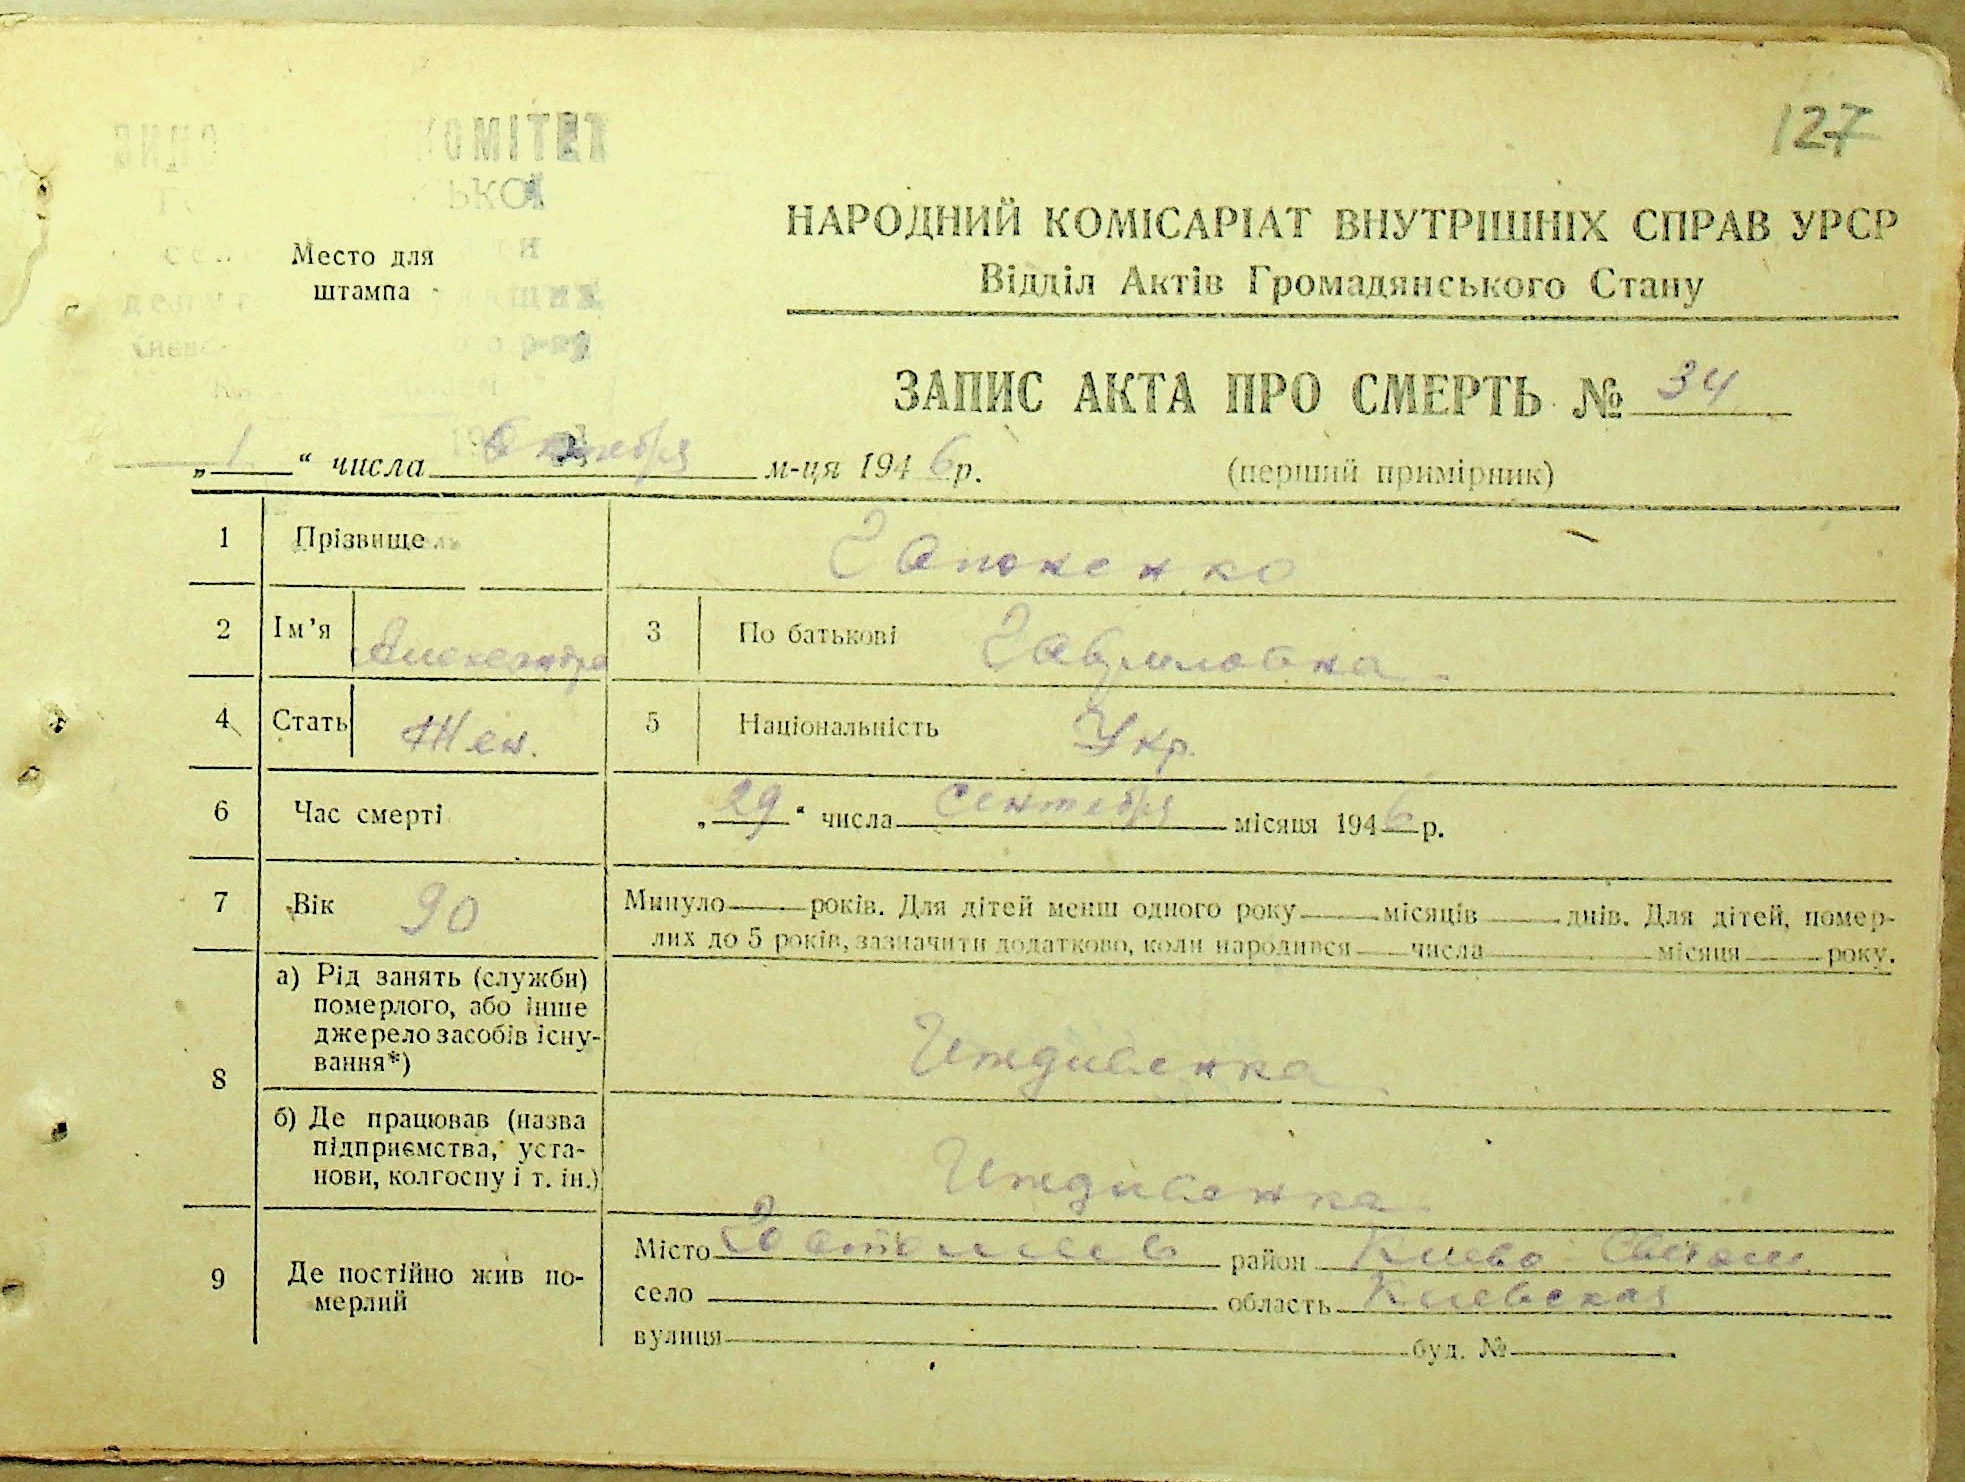 127
ОМІТЕТ
ЬКОЇ
Место для
штампа
НАРОДНИЙ КОМІСАРІАТ ВНУТРІШНІХ СПРАВ УРСР
Відділ Актів Громадянського Стану
ЗАПИС АКТА ПРО СМЕРТЬ № 34
„ 1 “ числа Октября м-ця 1946 р. (перший примірник)
1 Прізвище Гапоненко
2 Ім’я Александра 3 По батькові Гавриловна
4 Стать Жен. 5 Національність Укр.
6 Час смерті „ 29 “ числа Сентября місяця 1946 р.
7 Вік 90 Минуло років. Для дітей менш одного року місяців днів. Для дітей, помер-
лих до 5 років, зазначити додатково, коли народився числа місяця року.
8 а) Рід занять (служби)
померлого, або інше
джерело засобів існу-
вання*) Иждивенка
б) Де працював (назва
підприємства, уста-
нови, колгоспу і т. ін.) Иждивенка
9 Де постійно жив по-
мерлий
Місто район Киево Святош.
село область Киевская
вулиця буд. №